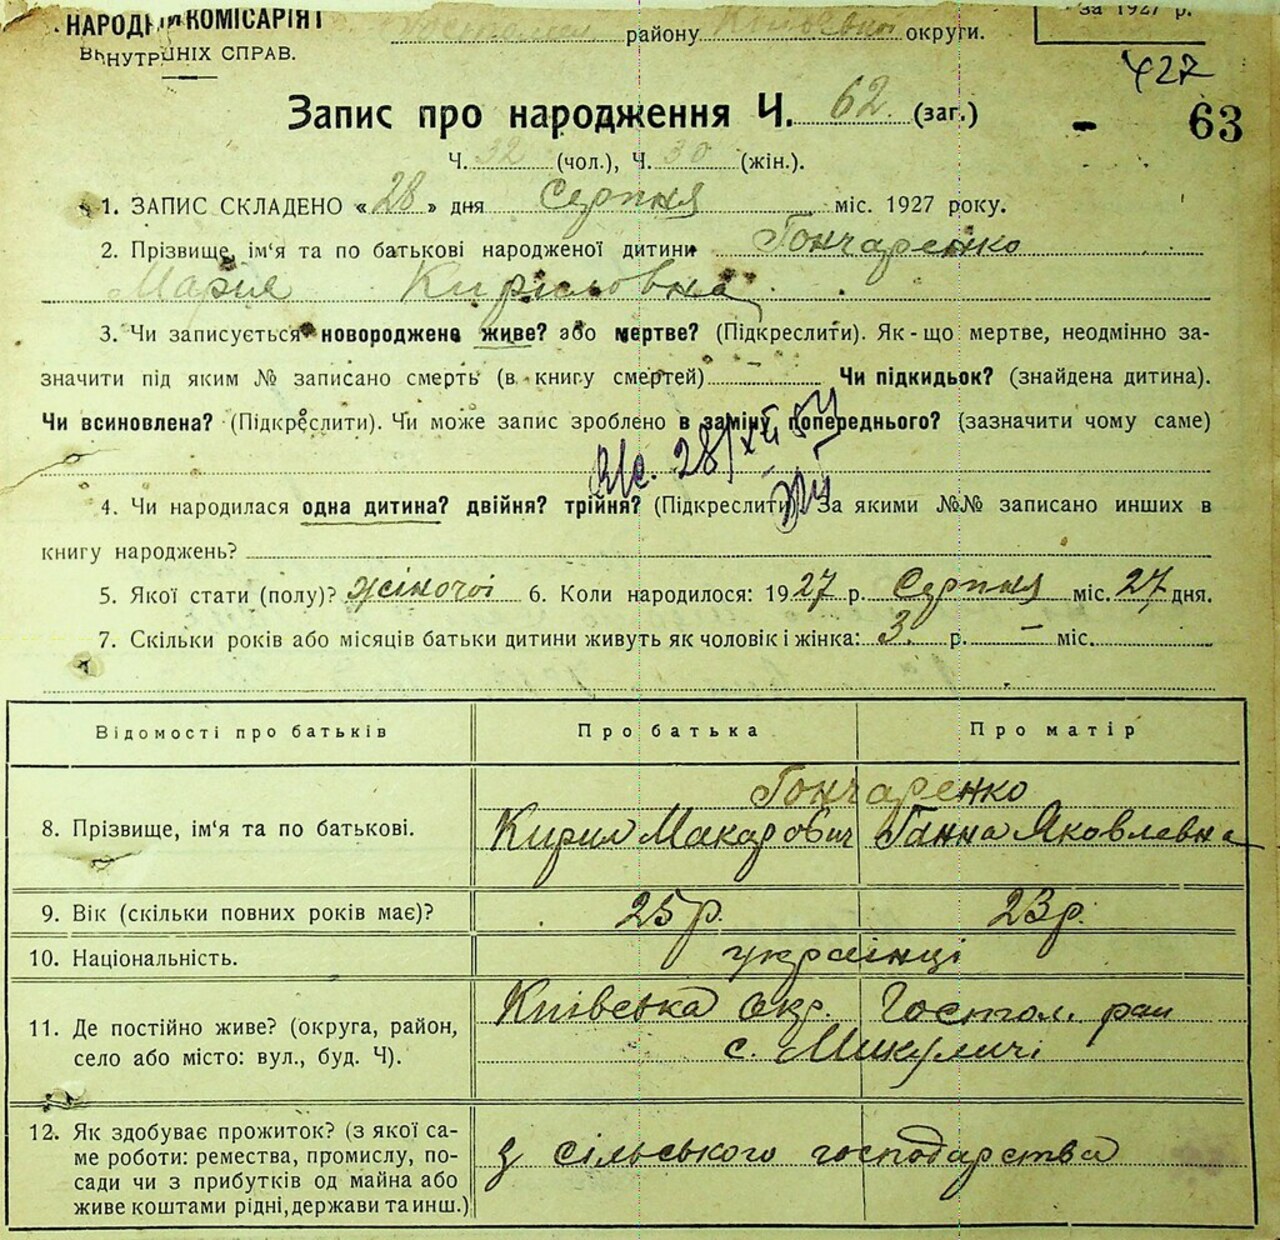 НАРОДНИЙ КОМІСАРІЯТ
ВНУТРІШНІХ СПРАВ.
району Київської округи.
за 1927 р.
427
63
Запис про народження Ч. 62 (заг.)
Ч. 32 (чол.), Ч. 30 (жін.).
1. ЗАПИС СКЛАДЕНО «28» дня Серпня міс. 1927 року.
2. Прізвище, ім'я та по батькові народженої дитини Гончаренко
Мария Кириловна
3. Чи записується новороджене живе? або мертве? (Підкреслити). Як-що мертве, неодмінно за-
значити під яким № записано смерть (в книгу смертей) Чи підкидьок? (знайдена дитина).
Чи всиновлена? (Підкреслити). Чи може запис зроблено в заміну попереднього? (зазначити чому саме)
28/XII 54
4. Чи народилася одна дитина? двійня? трійня? (Підкреслити). За якими №№ записано инших в
книгу народжень?
5. Якої стати (полу)? жіночоі 6. Коли народилося: 1927 р. Серпня міс. 27 дня.
7. Скільки років або місяців батьки дитини живуть як чоловік і жінка: 3 р. — міс.
Відомості про батьків Про батька Про матір
Гончаренко
8. Прізвище, ім'я та по батькові. Кирил Макарович Ганна Яковлевна
9. Вік (скільки повних років має)? 25 р. 23 р.
10. Національність. українці
11. Де постійно живе? (округа, район, село або місто: вул., буд. Ч). Київська окр. Гостом. рай
с. Микуличі
12. Як здобуває прожиток? (з якої са-
ме роботи: ремества, промислу, по-
сади чи з прибутків од майна або
живе коштами рідні, держави та инш.)
з сільського господарства